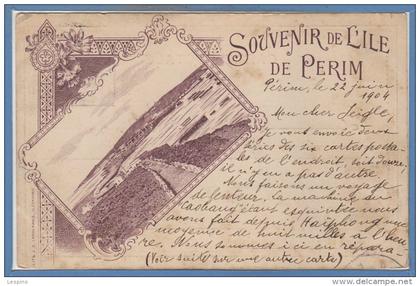 SOUVENIR DE L'ILE
DE PERIM
Périm, le 22 juin
1904
Mon cher
Je vous envoie deux
des six cartes posta-
les de l'endroit, soit douze,
il n'y en a pas d'autre.
Nous faisons un voyage
de lenteur, la machine du
étant esquintée nous
avons fait depuis Haïphong une
moyenne de huit milles à l'heu-
re. Nous sommes ici en répara-
(Voir suite sur une autre carte)
Lespino
www.delcampe.net